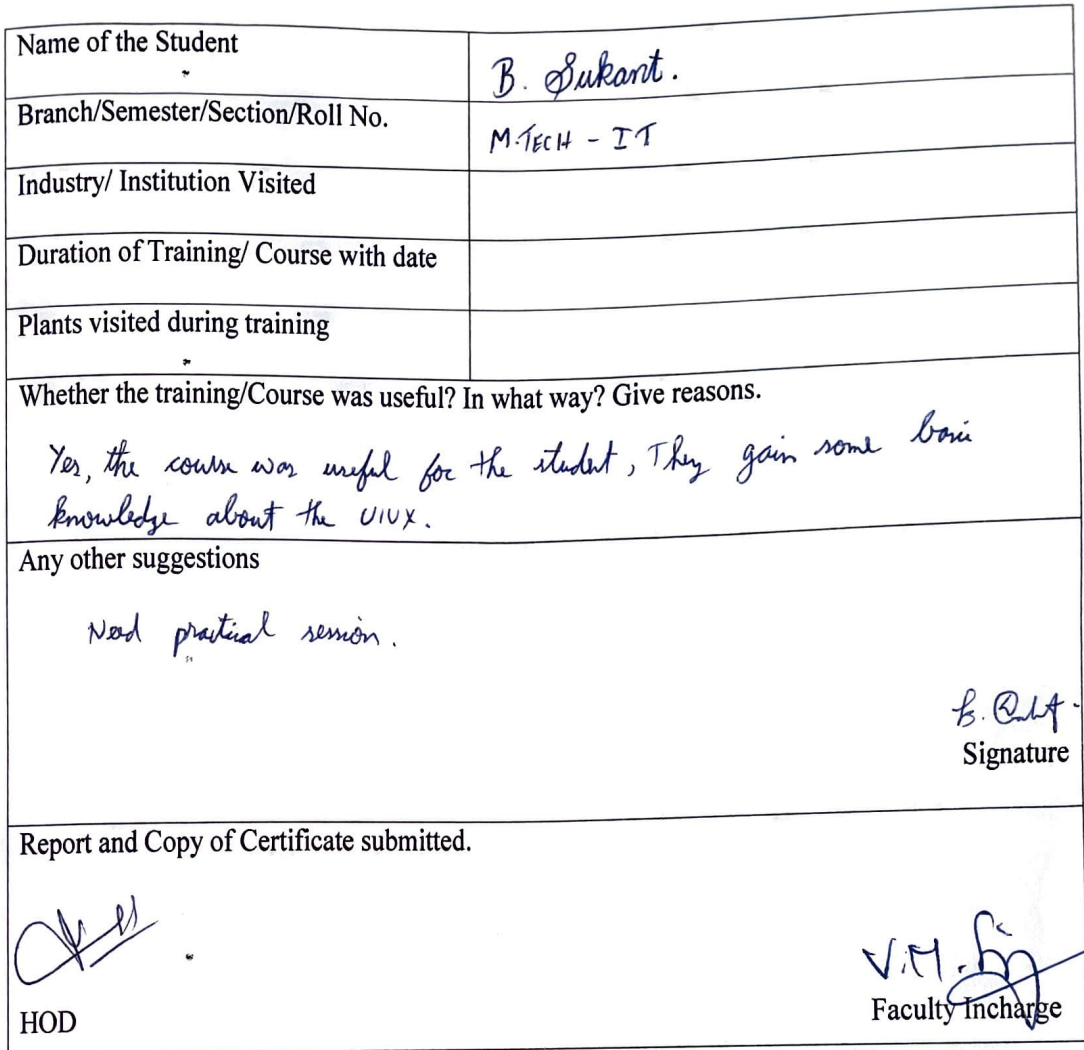 Name of the Student
B. Sukant.
Branch/Semester/Section/Roll No.
M.TECH - IT
Industry/ Institution Visited
Duration of Training/ Course with date
Plants visited during training
Whether the training/Course was useful? In what way? Give reasons.
Yes, the course was useful for the student, They gain some basic
knowledge about the UIUX.
Any other suggestions
Need practical session.
Signature
Report and Copy of Certificate submitted.
V.M.
HOD
Faculty Incharge